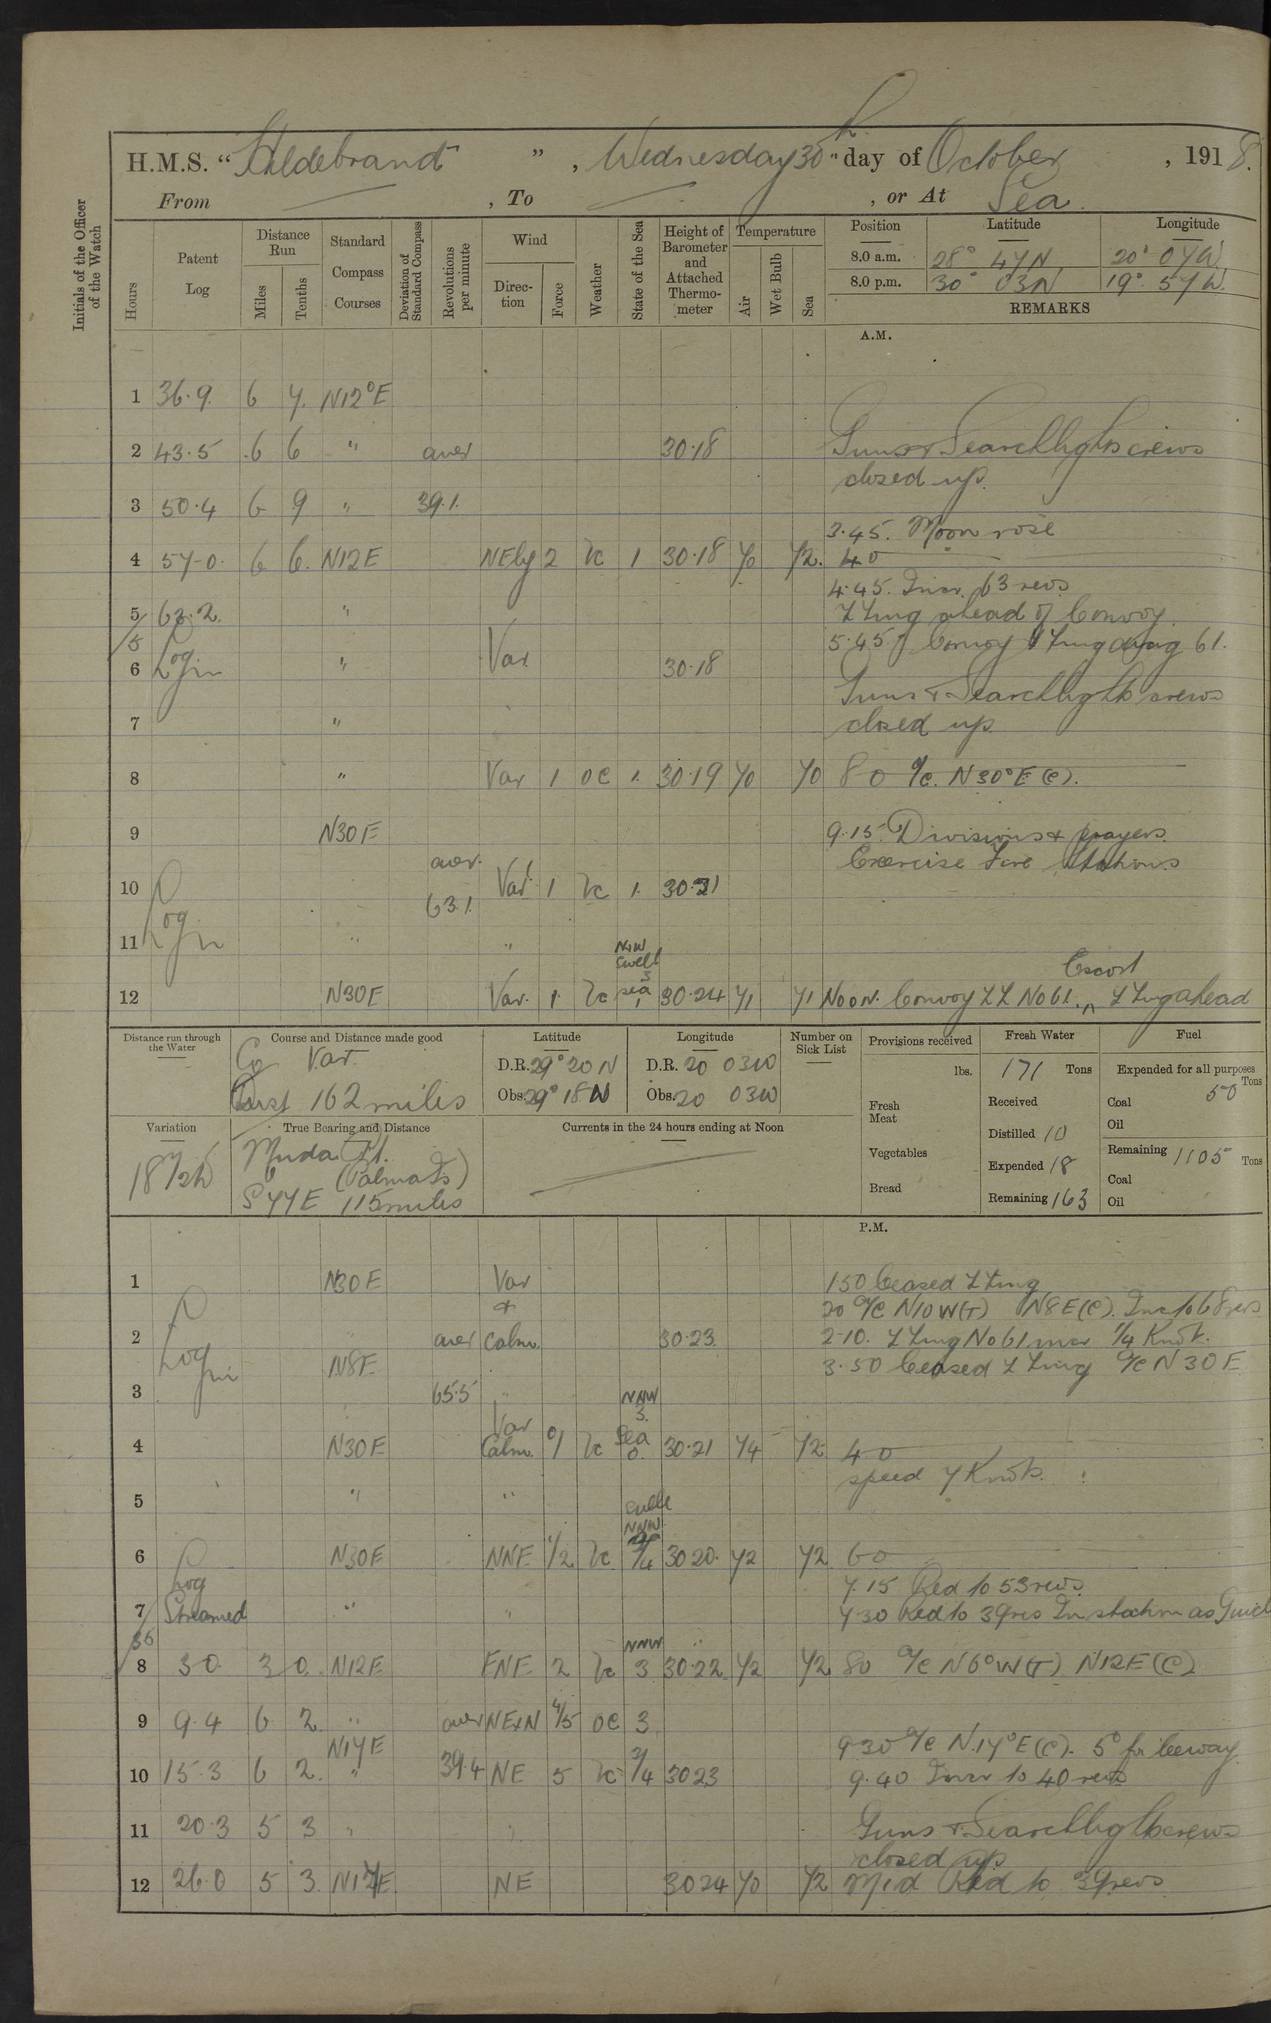 H.M.S. “ Hildebrand ” , Wednesday 30th day of October , 1918.
From — , To — , or At Sea.
Initials of the Officer of the Watch
Hours
Patent Log
Distance Run
Miles
Tenths
Standard Compass Courses
Deviation of Standard Compass
Revolutions per minute
Wind
Direction
Force
Weather
State of the Sea
Height of Barometer and Attached Thermometer
Temperature
Air
Wet Bulb
Sea
Position Latitude Longitude
8.0 a.m. 28° 47N 20° 07W
8.0 p.m. 30° 03N 19° 57W
REMARKS
A.M.
1 36.9 6 7 N12°E
2 43.5 6 6 " aver 30.18 Guns & Searchlights crews
closed up.
3 50.4 6 9 " 39.1
3.45. Moon rose
4 57.0 6 6 N12E NEly 2 bc 1 30.18 70 72. 4.0
4.45. Incr. 63 revs
5 63.2 " ZZing ahead of Convoy
5.45 Convoy ZZing 61.
6 Log in " Var 30.18
Guns & Searchlights crews
7 " closed up.
8 " Var 1 oc 1. 30.19 70 70 8.0 a/c. N30°E (C).
9 N30E 9.15 Divisions & prayers.
aver. Exercise Fire Stations
10 63.1 Var 1 bc 1. 30.21
Log in
11 " "
NNW swell 3
Escort
12 N30E Var. 1. bc sea 1 30.24 71 71 Noon. Convoy ZZ No 61. ^ ZZing ahead
Distance run through the Water
Course and Distance made good
Co Var.
Dist 162 miles
Latitude
D.R. 29° 20 N
Obs. 29° 18 N
Longitude
D.R. 20 03W
Obs. 20 03W
Number on Sick List
Provisions received
lbs.
Fresh Meat
Vegetables
Bread
Fresh Water
171 Tons
Received
Distilled 10
Expended 18
Remaining 163
Fuel
Expended for all purposes
Tons
Coal 50
Oil
Remaining 1105 Tons
Coal
Oil
Variation
18 1/2W
True Bearing and Distance
Muda Pt.
(Palma Is)
S77E 115 miles
Currents in the 24 hours ending at Noon
P.M.
1 N30E Var 1.50 Ceased ZZing
& 2.0 a/c N10W(T) N8E(C). Inc to 68 revs
2 " aver Calm. 30.23 2.10. ZZing No 61 incr 1/4 Knot.
Log in N8E 3.50 Ceased ZZing a/c N30E
3 65.5 " NNW 3.
Var
4 N30E Calm. 0/1 bc Sea 0. 30.21 74 72 4.0
speed 7 Knots.
5 " " swell
NNW
6 N30E NNE 1/2 bc 3/4 30.20. 72 72 6.0
Log 7.15 Red to 53 revs.
7 Streamed " " 7.30 Red to 39 revs In station as Guide
/36 NNW
8 3.0 3 0. N12E ENE 2 bc 3 30.22 72 72 8.0 a/c N6°W(T) N12E(C)
9 9.4 6 2 " aver NExN 4/5 oc 3
N17E 9.30 a/c N.17°E(C). 5° for leeway.
10 15.3 6 2. " 39.4 NE 5 bc 3/4 30.23 9.40 Incr to 40 revs
11 20.3 5 3 " " Guns & Searchlights crews
closed up
12 26.0 5 3. N17E NE 30.24 70 72 Mid Red to 39 revs